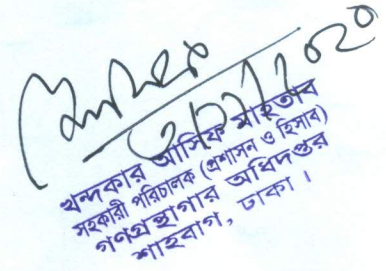 খন্দকার আসিফ মাহতাব
সহকারী পরিচালক (প্রশাসন ও হিসাব)
গণগ্রন্থাগার অধিদপ্তর
শাহবাগ, ঢাকা।